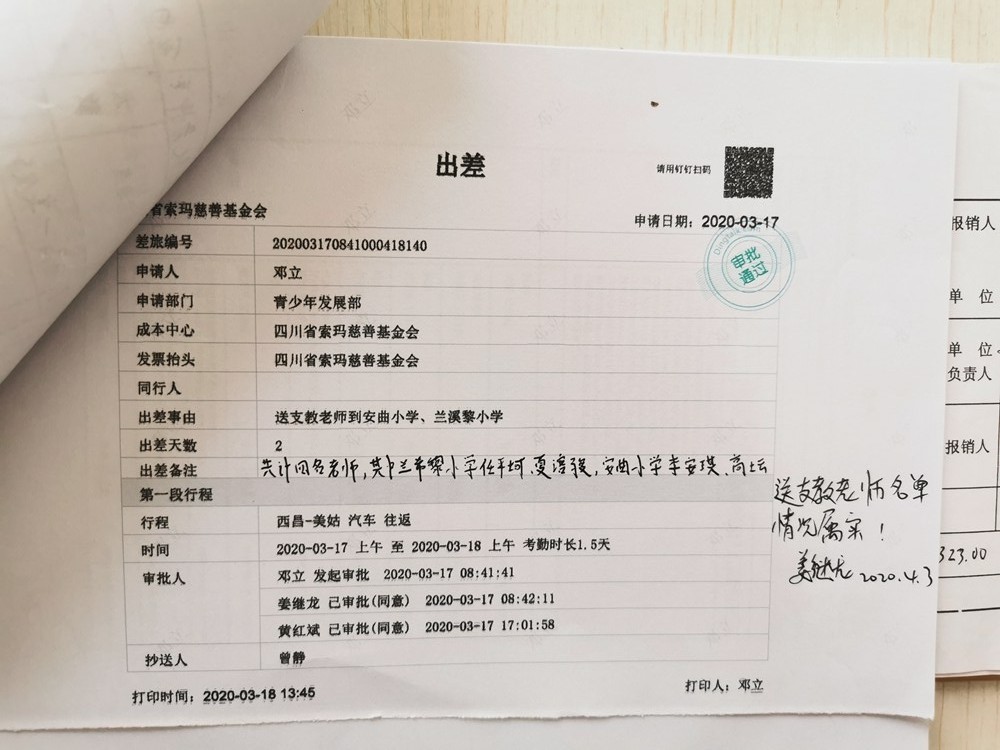 出差
请用钉钉扫码
省索玛慈善基金会
申请日期：2020-03-17
审批
通过
差旅编号 202003170841000418140
申请人 邓立
申请部门 青少年发展部
成本中心 四川省索玛慈善基金会
发票抬头 四川省索玛慈善基金会
同行人
出差事由 送支教老师到安曲小学、兰溪黎小学
出差天数 2
出差备注 共计四名老师,其中兰 黎小学任 夏 ,安曲小学李安琪、高
第一段行程
行程 西昌-美姑 汽车 往返
时间 2020-03-17 上午 至 2020-03-18 上午 考勤时长1.5天
审批人 邓立 发起审批 2020-03-17 08:41:41
姜继龙 已审批(同意) 2020-03-17 08:42:11
黄红斌 已审批(同意) 2020-03-17 17:01:58
抄送人 曾静
打印时间：2020-03-18 13:45
打印人：邓立
送支教老师名单
情况属实！
姜继龙 2020.4.3
报销人
单 位
单 位
负责人
报销人
323.00